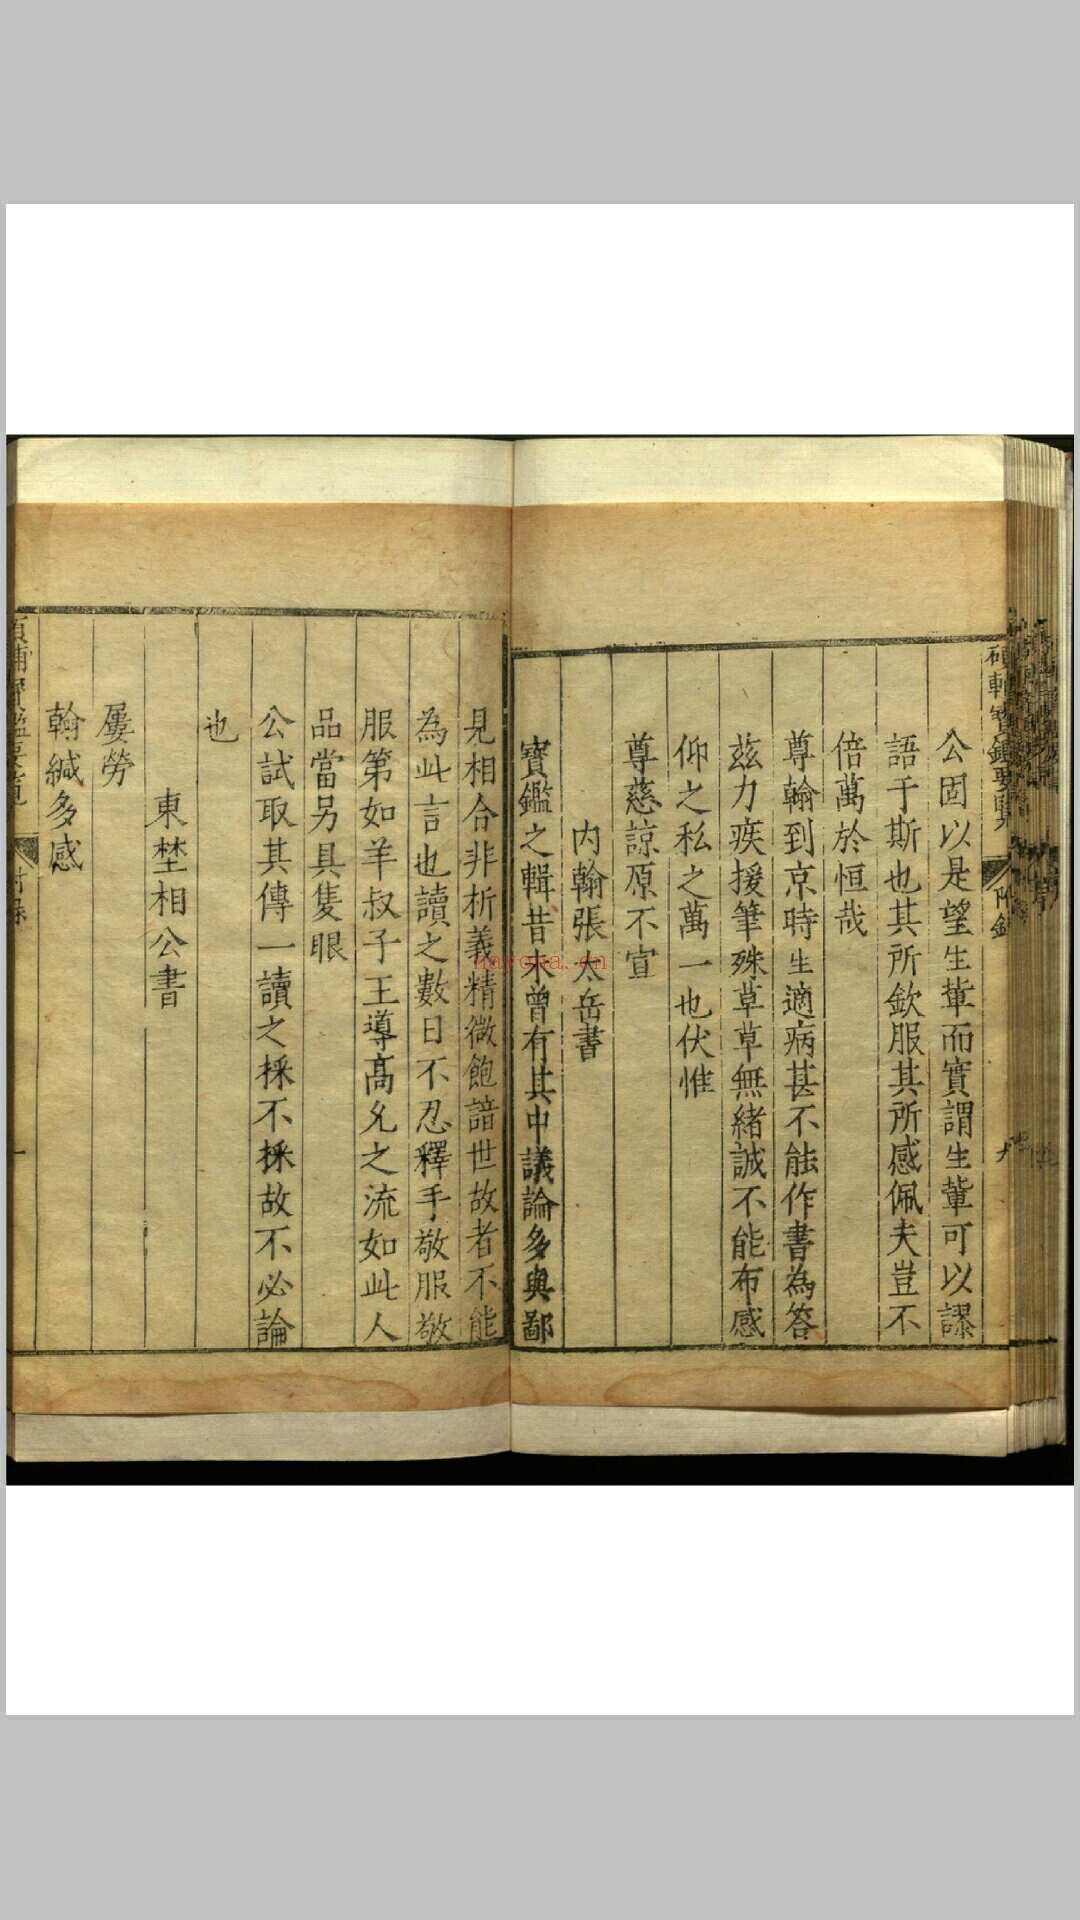 碩輔寶鑑要覽 附錄
公固以是望生軰而實謂生軰可以謬
語于斯也其所欽服其所感佩夫豈不
倍萬於恒哉
尊翰到京時生適病甚不能作書為答
茲力疾援筆殊草草無緒誠不能布感
仰之私之萬一也伏惟
尊慈諒原不宣
內翰張太岳書
寶鑑之輯昔未曾有其中議論多與鄙
見相合非析義精微飽諳世故者不能
為此言也讀之數日不忍釋手敬服敬
服第如羊叔子王導高允之流如此人
品當另具隻眼
公試取其傳一讀之採不採故不必論
也
東埜相公書
屢勞
翰緘多感
碩輔寶鑑要覽 附錄
nayona.cn